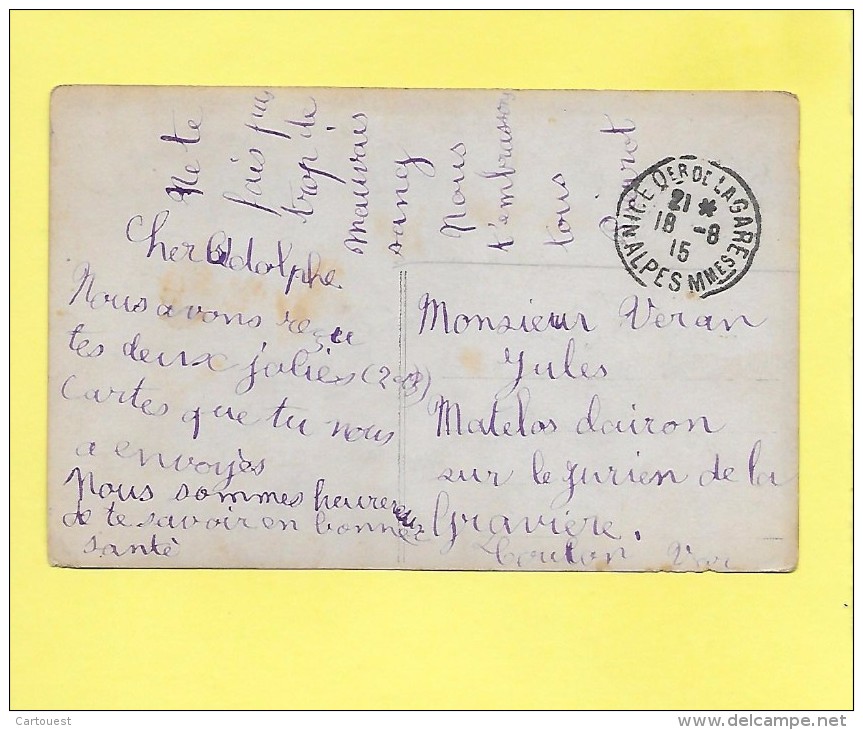 Cher Adolphe
Nous avons reçu
tes deux jolies (2-8)
Cartes que tu nous
a envoyès
Nous sommes heureux
de te savoir en bonne
santè
Ne te
fais pas
trop de
mauvais
sang
Nous
t'embrassons
tous
Monsieur Veran
Jules
Matelos clairon
sur le Jurien de la
Gravière.
Toulon Var
NICE QER DE LA GARE
21 *
18 -8
15
ALPES MMES
Cartouest
delcampe.net